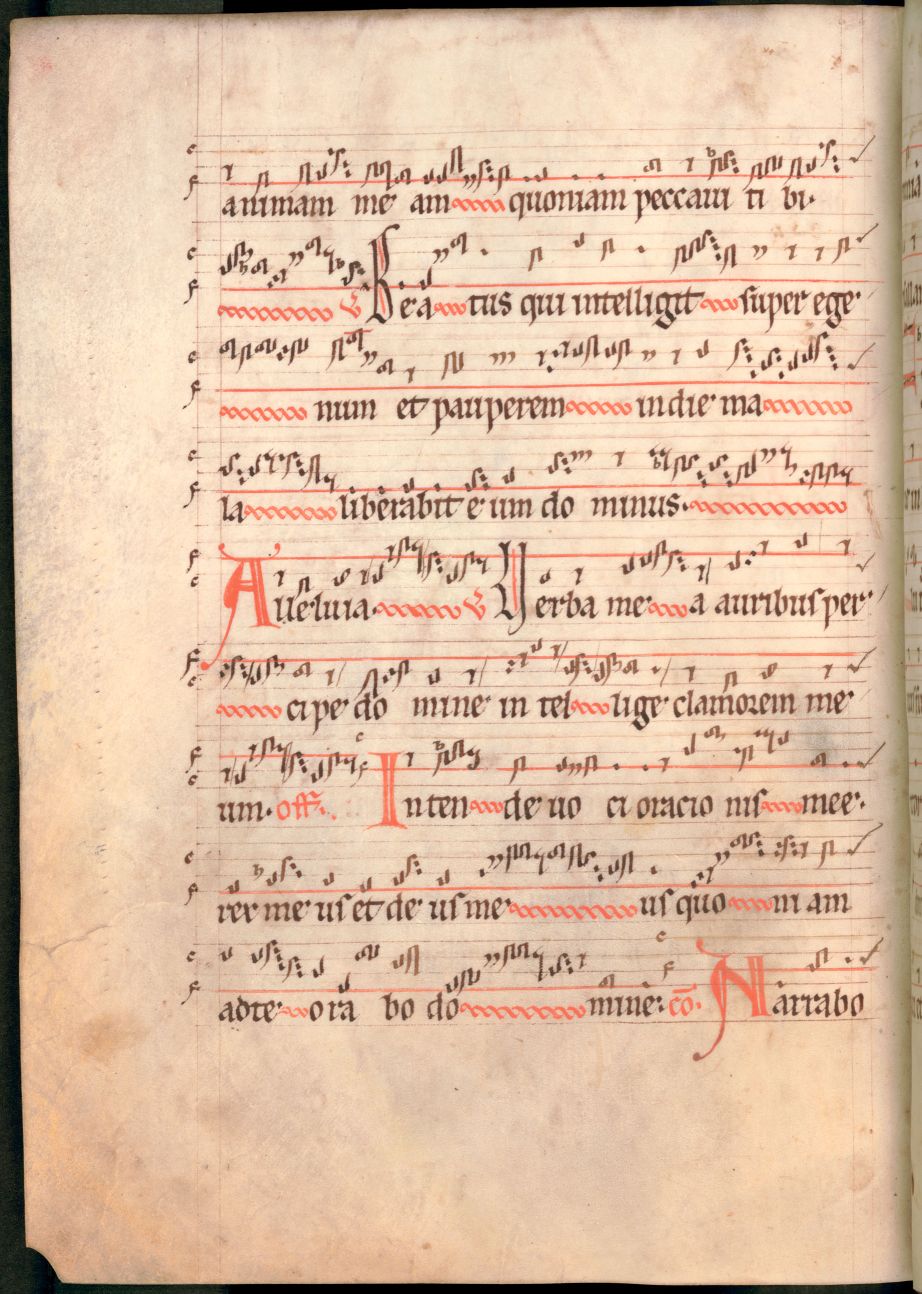 animam me am quoniam peccaui ti bi.
℣ Be a tus qui intelligit super ege
num et pauperem in die ma
la liberabit e um do minus.
Alleluia. ℣ Verba me a auribus per
cipe do mine in tel lige clamorem me
um. off. Inten de uo ci oracio nis mee.
rex me us et de us me us quo ni am
adte ora bo do mine. cō. Narrabo